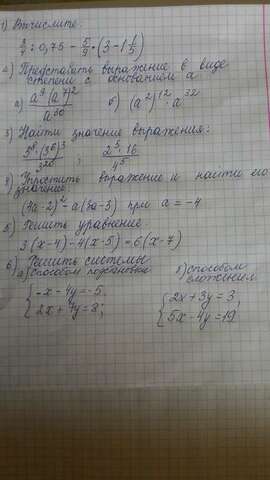 1) Вычислите:
3/7 : 0,75 - 5/9 * (3 - 1 1/5)
2) Представить выражение в виде
степени с основанием a
a) a^9 (a^7)^2 / a^30 б) (a^2)^12 · a^32
3) Найти значение выражения:
3^8 · (3^6)^3 / 3^26 ; 2^5 · 16 / 4^5
4) Упростить выражение и найти его
значение:
(3a - 2)^2 - a(3a - 3) при a = -4
5) Решить уравнение
3(x - 4) - 4(x - 5) = 6(x - 7)
6) Решить системы
a) способом подстановки б) способом
сложения
{ -x - 4y = -5, { 2x + 3y = 3,
2x + 7y = 8; 5x - 4y = 19